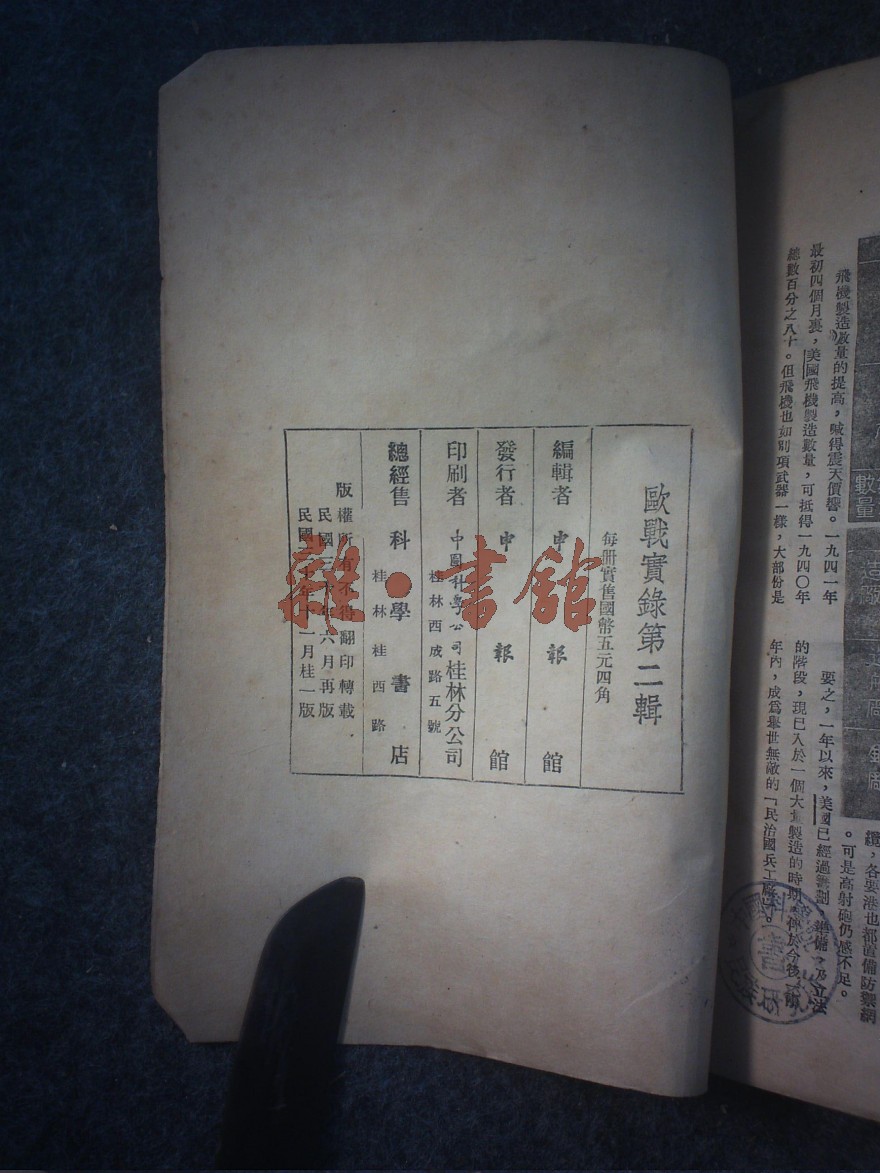 飛機製造數量的提高，喊得震天價響。一九四一年
最初四個月裏，美國飛機製造數量，可抵得一九四〇年
總數百分之八十。但飛機也如別項武器一樣，大部份是
纜，各要港也都置備防禦網
。可是高射砲仍感不足。
要之，一年以來，美國已經過籌劃。準備，乃立法
的階段，現已入於一個大量製造的時期
年內，成爲舉世無敵的「民治國兵工廠」。
歐戰實錄第二輯
每册實售國幣五元四角
編輯者 申報館
發行者 申報館
印刷者 中國科學公司桂林分公司
桂林西成路五號
總經售 科學書店
桂林桂西路
版權所有不得翻印轉載
民國三十年六月再版
民國三十年十一月桂一版
龍·書館